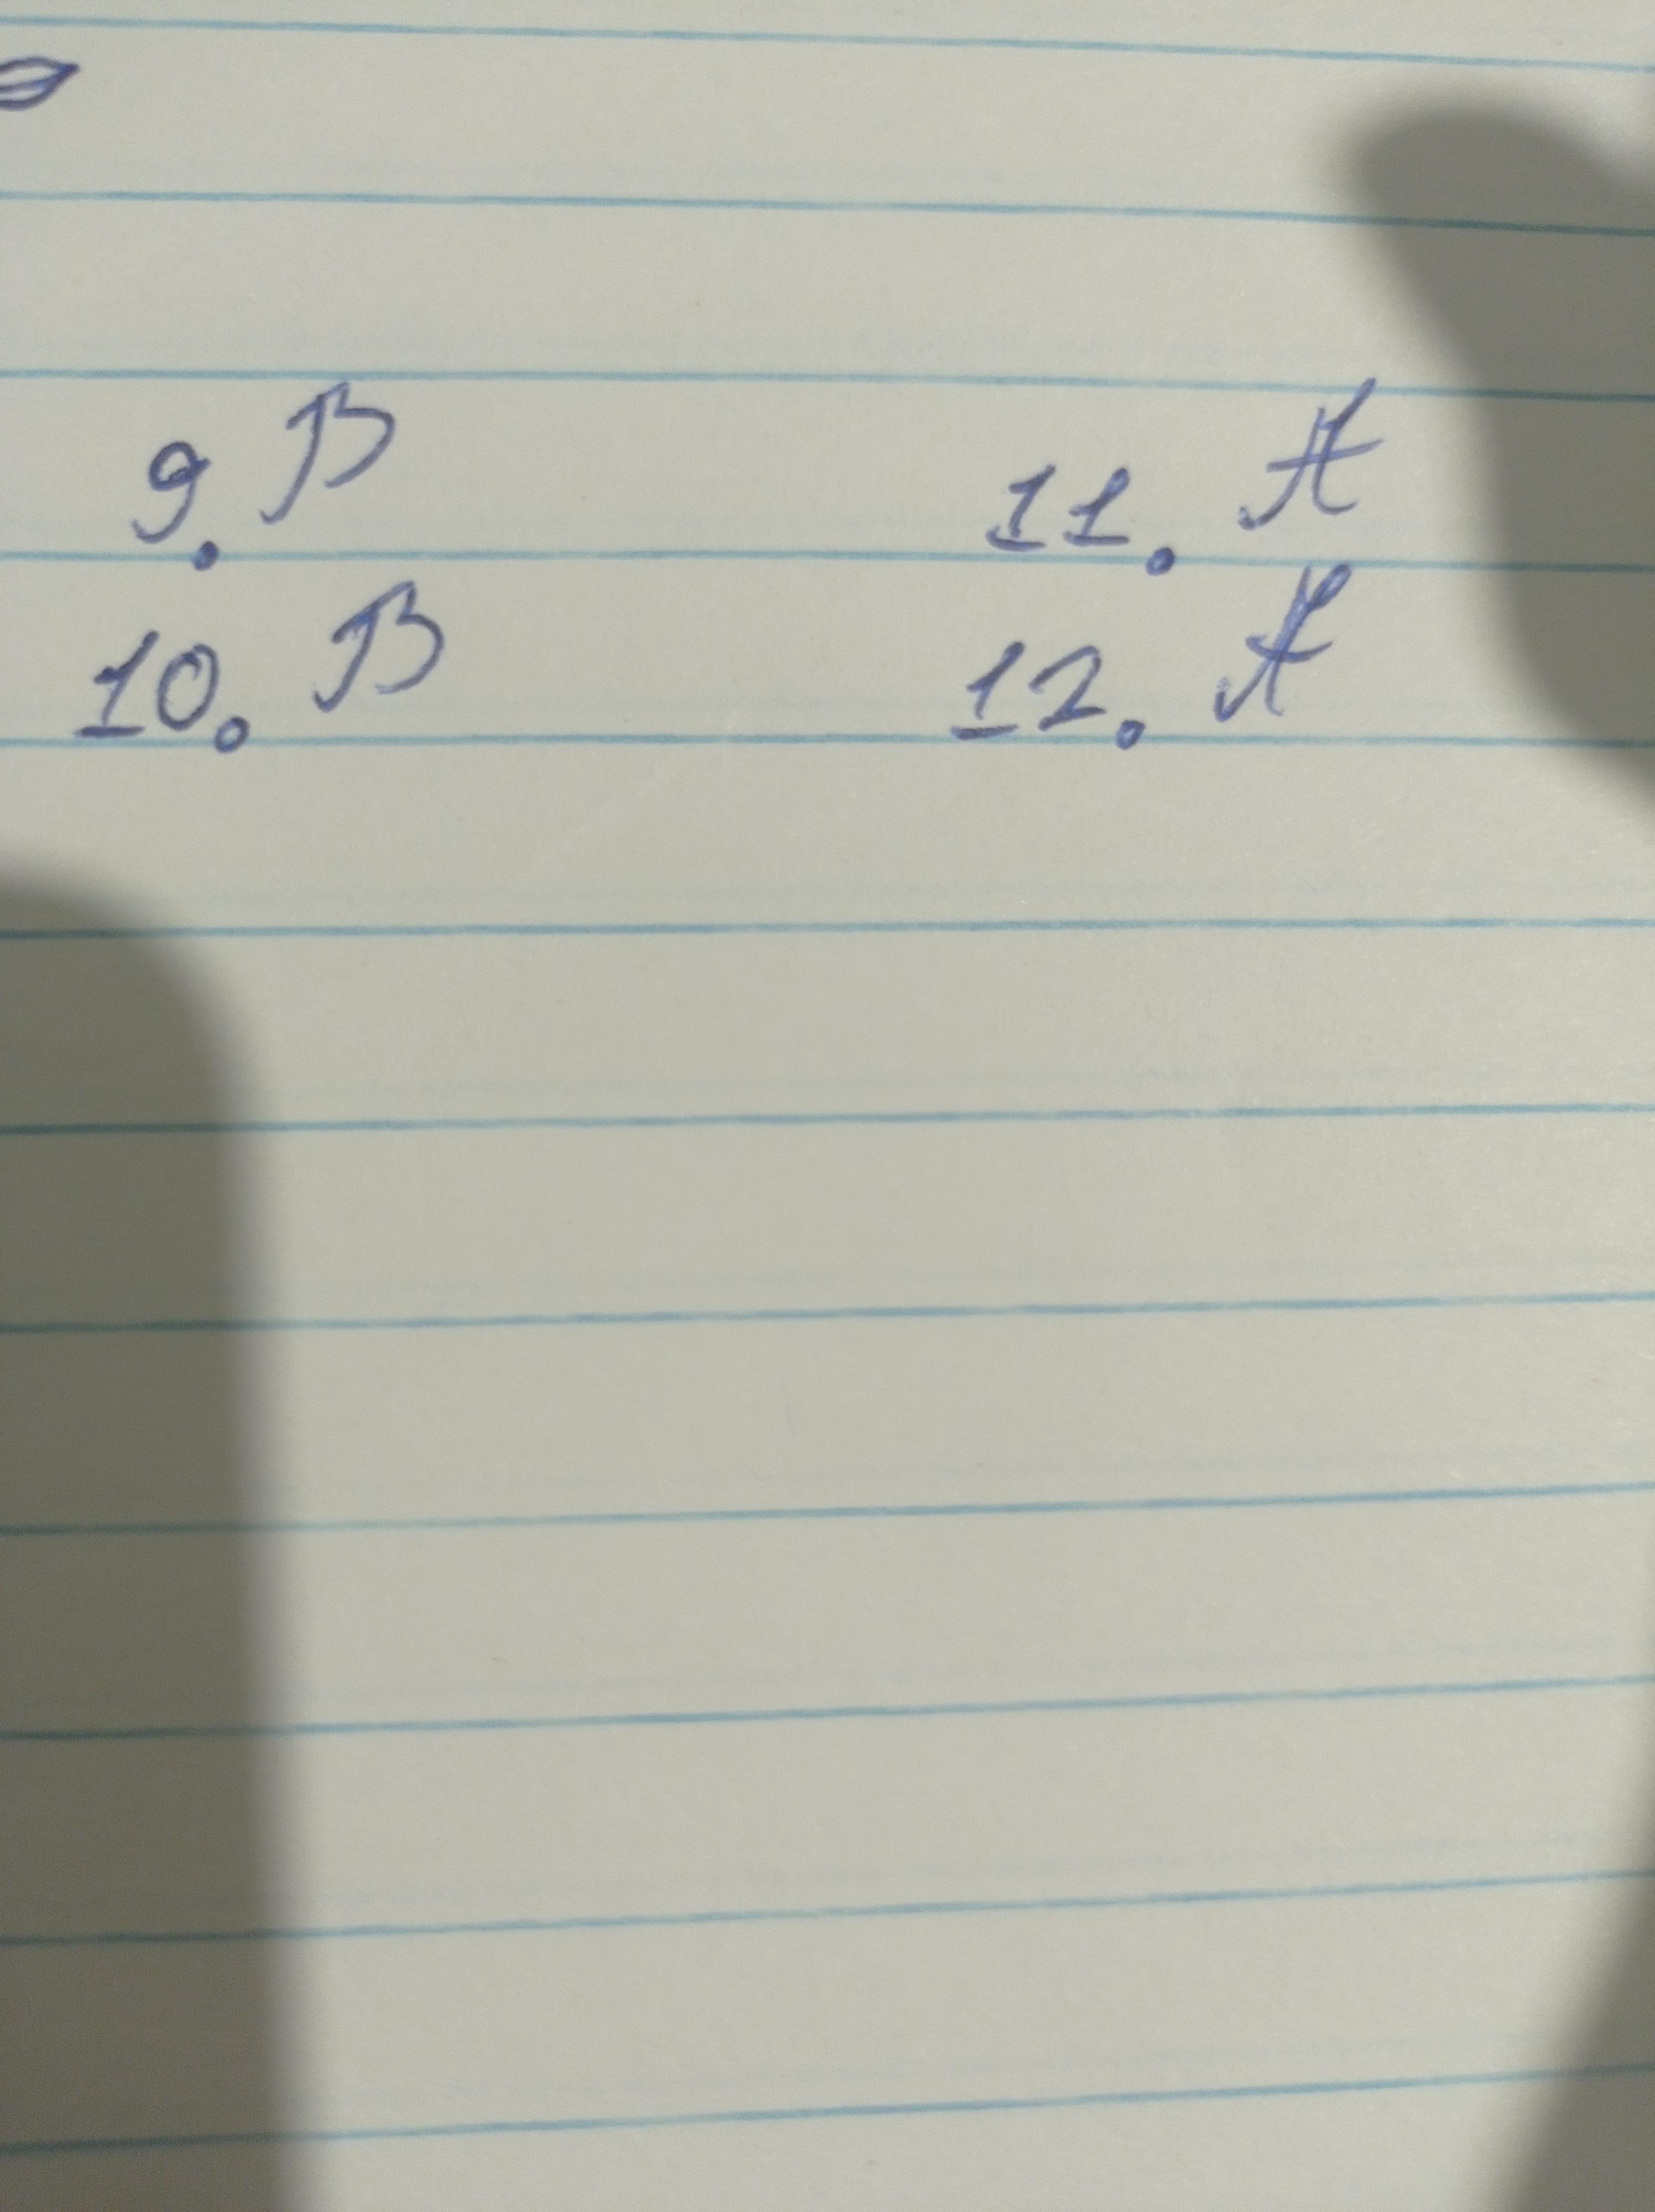 9. B 11. A
10. B 12. A